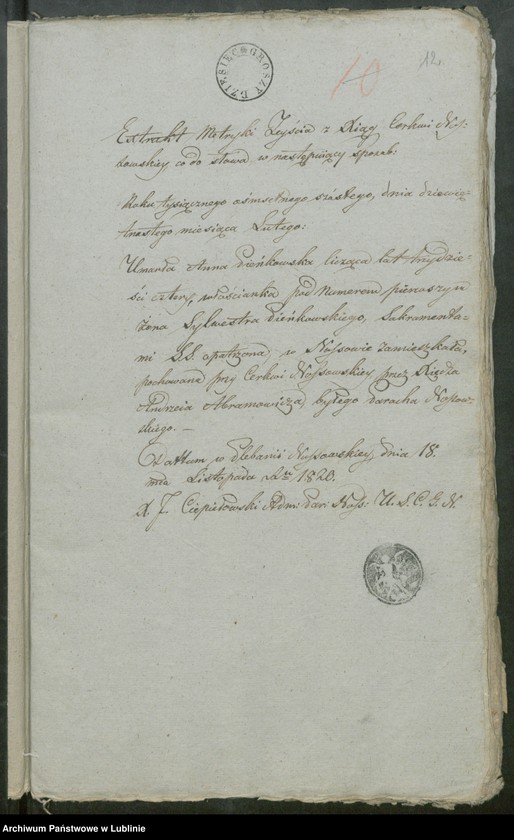 12
10
DZIESIĘĆ GROSZY
Extrakt Metryki Zeyścia z Xiąg Cerkwi Nos:
sowskiey co do słowa w następuiący sposob:
Roku tysiącznego osmsetnego szóstego, dnia dziewię-
tnastego miesiąca Lutego:
Umarła Anna Dieńkowska licząca lat trzydzie-
ści cztery, włościanka pod Numerem pierwszym
żona Sylwestra Dieńkowskiego, Sakramenta-
mi S.S. opatrzona, w Nossowie zamieszkała,
pochowana przy Cerkwi Nossowskiey przez Xiędza
Andrzeia Abramowicza, byłego Parocha Nossow-
skiego. —
Dattum w Plebanii Nossowskiey, dnia 18.
mca Listopada 1820.
X. J. Ciepiełowski Adm: Par: Noss: U. S. C. G. N.
Archiwum Państwowe w Lublinie